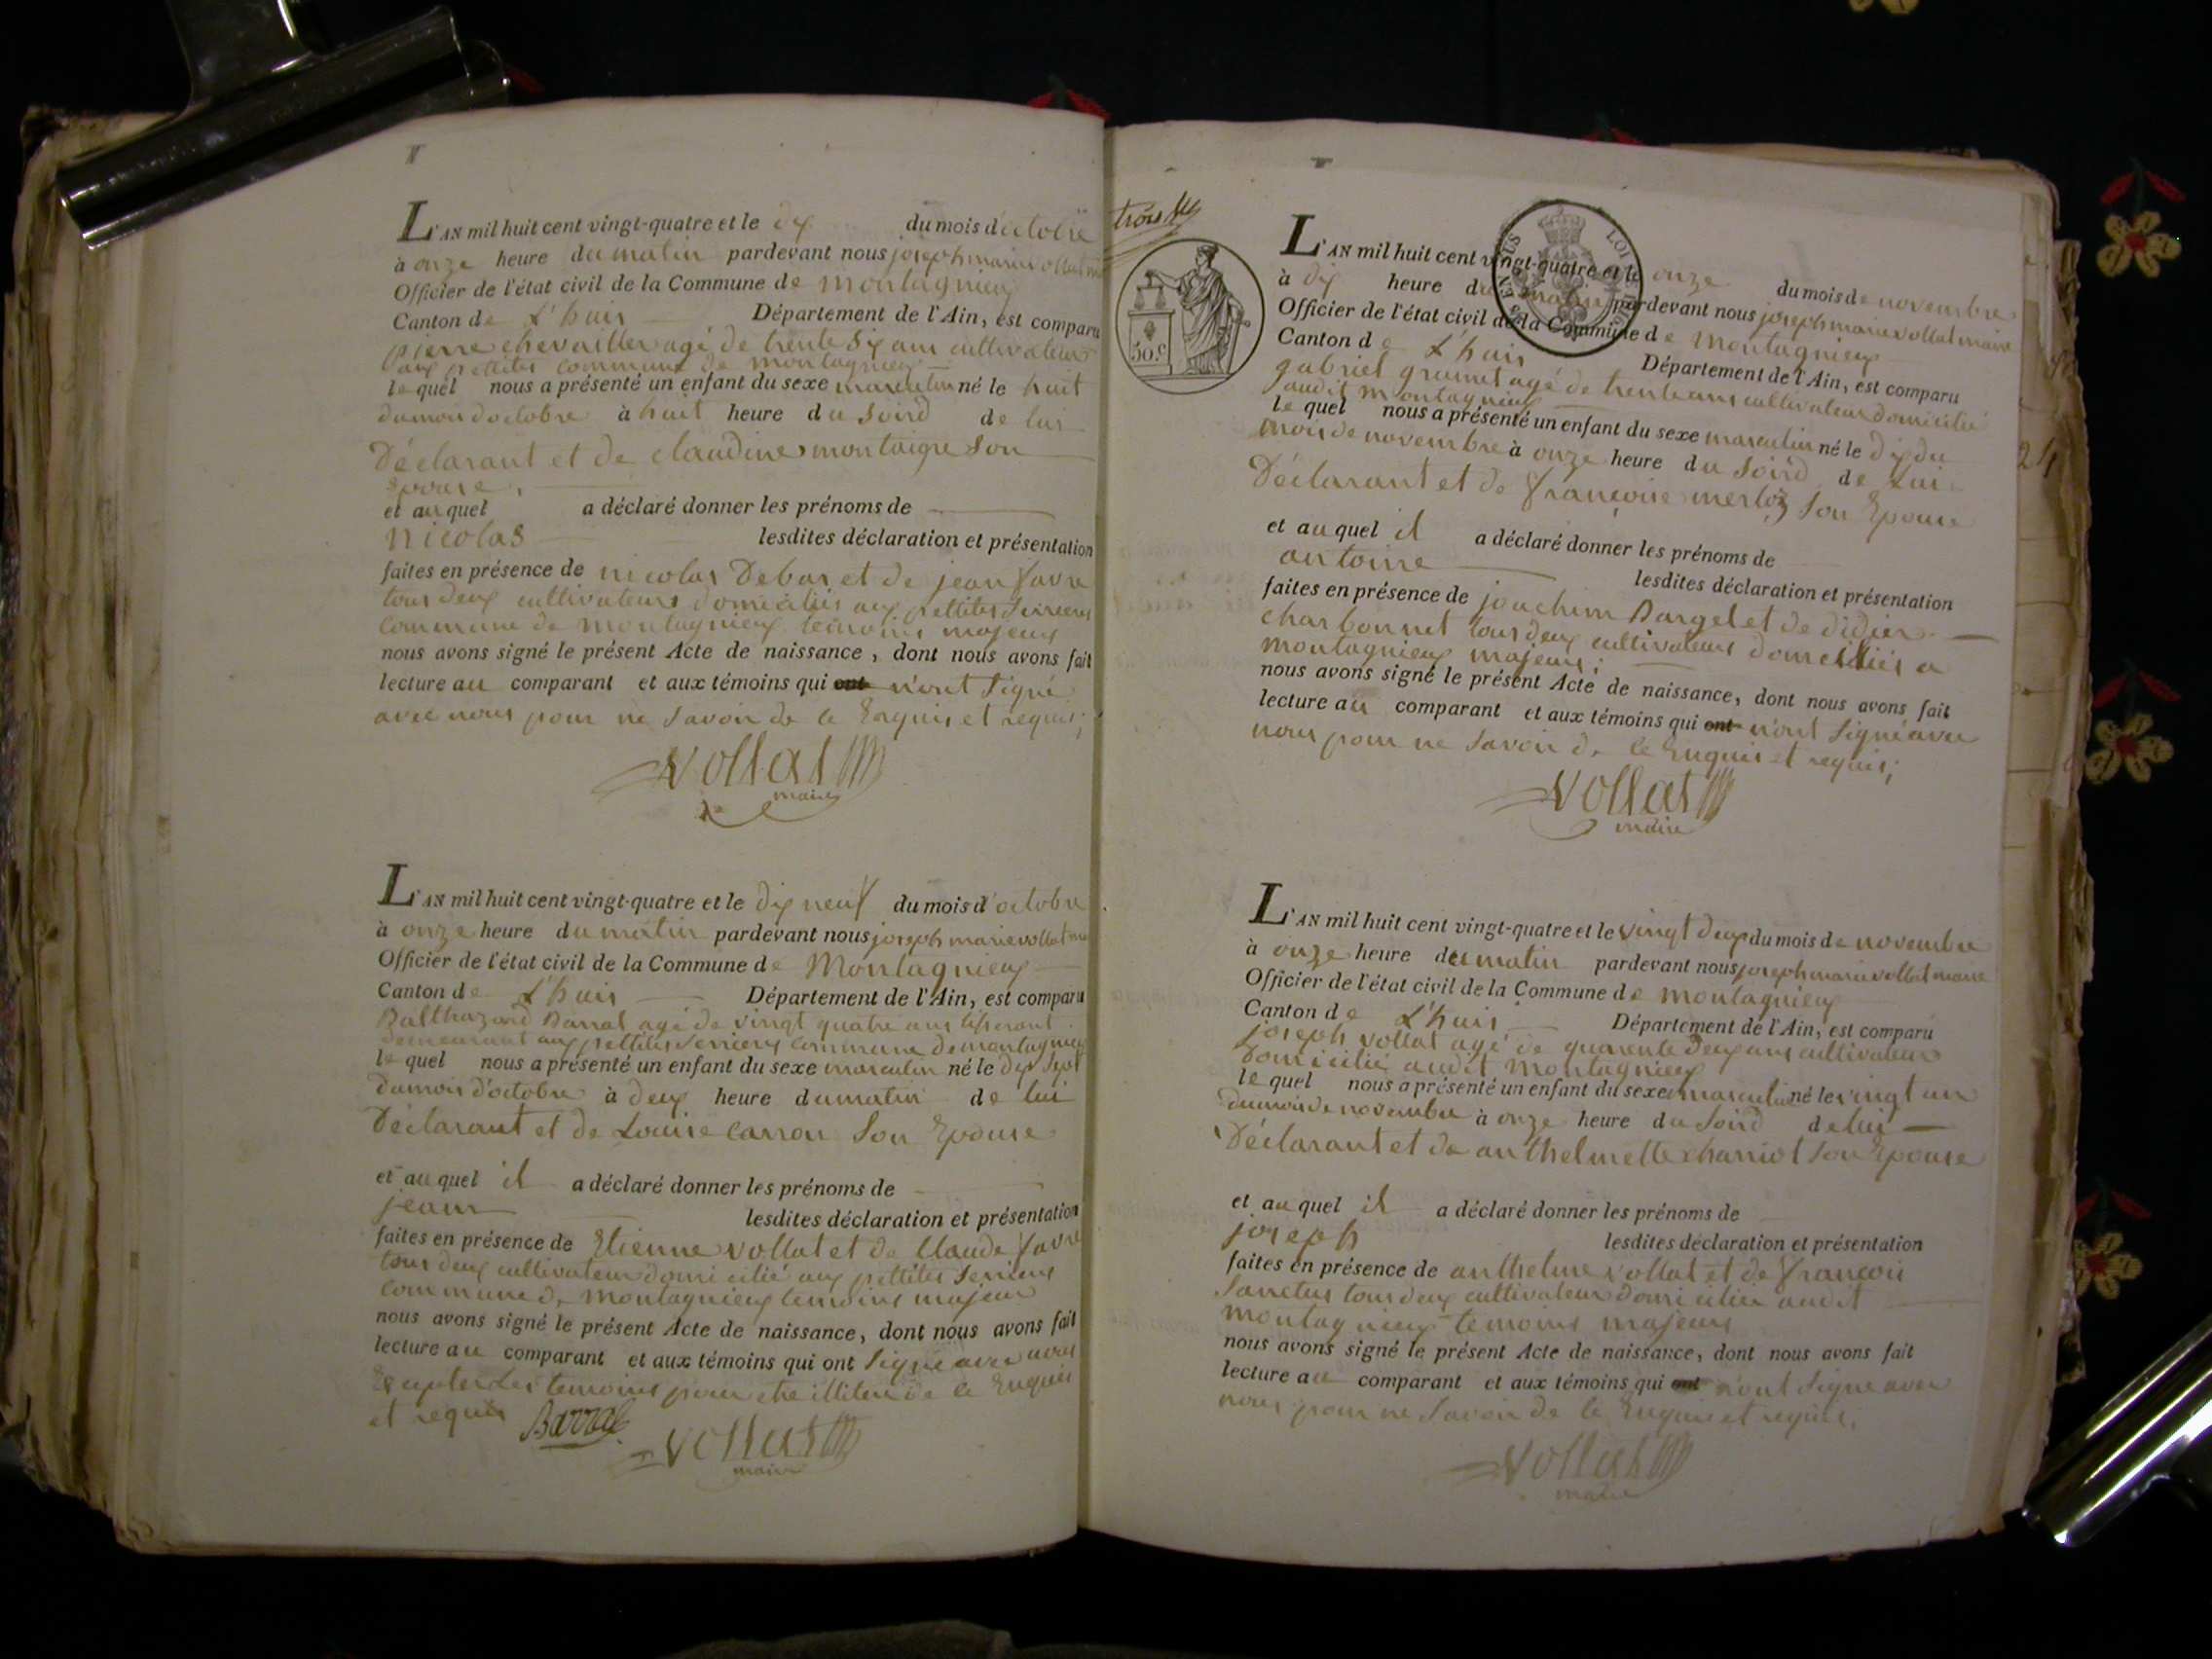 L'AN mil huit cent vingt-quatre et le dix du mois d'octobre
à onze heure du matin pardevant nous joseph marie vollat
Officier de l'état civil de la Commune de Montagnieux
Canton de L'huis Département de l'Ain, est comparu
pierre chevailler agé de trente six ans cultivateur
aux pettites commune de montagnieux
le quel nous a présenté un enfant du sexe masculin né le huit
du mois d'octobre à huit heure du soird de lui
Déclarant et de claudine montaigre son
Epouse,
et au quel a déclaré donner les prénoms de
nicolas lesdites déclaration et présentation
faites en présence de nicolas Debas et de jean favre
tous deux cultivateurs domiciliés aux pettites Serrieres
commune de Montagnieux temoins majeurs
nous avons signé le présent Acte de naissance, dont nous avons fait
lecture au comparant et aux témoins qui ont n'ont signé
avec nous pour ne savoir de ce Enquis et requis;
Vollat
maire
L'AN mil huit cent vingt-quatre et le dix neuf du mois d'octobre
à onze heure du matin pardevant nous joseph marie vollat
Officier de l'état civil de la Commune de Montagnieux
Canton de L'huis Département de l'Ain, est comparu
Balthazard Barral agé de vingt quatre ans tisserant
demeurant aux pettites Serrieres commune de montagnieux
le quel nous a présenté un enfant du sexe masculin né le dix sept
du mois d'octobre à deux heure du matin de lui
Déclarant et de Louise Carron son Epouse
et au quel il a déclaré donner les prénoms de
jean lesdites déclaration et présentation
faites en présence de Etienne vollat et de Claude favre
tous deux cultivateur domicilié aux pettites Serrieres
commune de montagnieux temoins majeur
nous avons signé le présent Acte de naissance, dont nous avons fait
lecture au comparant et aux témoins qui ont signé avec nous
Excepter Les temoins pour etre illiteré de ce Enquis
et requis Barral
Vollat
maire
trois
50.c
L'AN mil huit cent vingt-quatre et le onze du mois de novembre
à dix heure du matin pardevant nous joseph marie vollat maire
Officier de l'état civil de la Commune de Montagnieux
Canton de L'huis Département de l'Ain, est comparu
gabriel grumet agé de trente ans cultivateur domicilié
audit Montagnieux
le quel nous a présenté un enfant du sexe masculin né le dix du
mois de novembre à onze heure du soird de Lui
Déclarant et de françoise merloz son Epouse
et au quel il a déclaré donner les prénoms de
antoine lesdites déclaration et présentation
faites en présence de joachim Darget et de didier
charbonnet tous deux cultivateurs domiciliés a
montagnieux majeurs;
nous avons signé le présent Acte de naissance, dont nous avons fait
lecture au comparant et aux témoins qui ont n'ont signé avec
nous pour ne savoir de ce Enquis et requis;
Vollat
maire
L'AN mil huit cent vingt-quatre et le vingt deux du mois de novembre
à onze heure du matin pardevant nous joseph marie vollat maire
Officier de l'état civil de la Commune de montagnieux
Canton de L'huis Département de l'Ain, est comparu
joseph vollat agé de quarente deux ans cultivateur
Domicilié audit Montagnieux
le quel nous a présenté un enfant du sexe masculin né le vingt un
du mois de novembre à onze heure du soird de lui
Déclarant et de anthelmette charriot son Epouse
et au quel il a déclaré donner les prénoms de
joseph lesdites déclaration et présentation
faites en présence de anthelme vollat et de françois
Sanctus tous deux cultivateur domicilier audit
Montagnieux temoins majeurs
nous avons signé le présent Acte de naissance, dont nous avons fait
lecture au comparant et aux témoins qui ont n'ont signé avec
nous pour ne savoir de ce Enquis et requis.
Vollat
maire